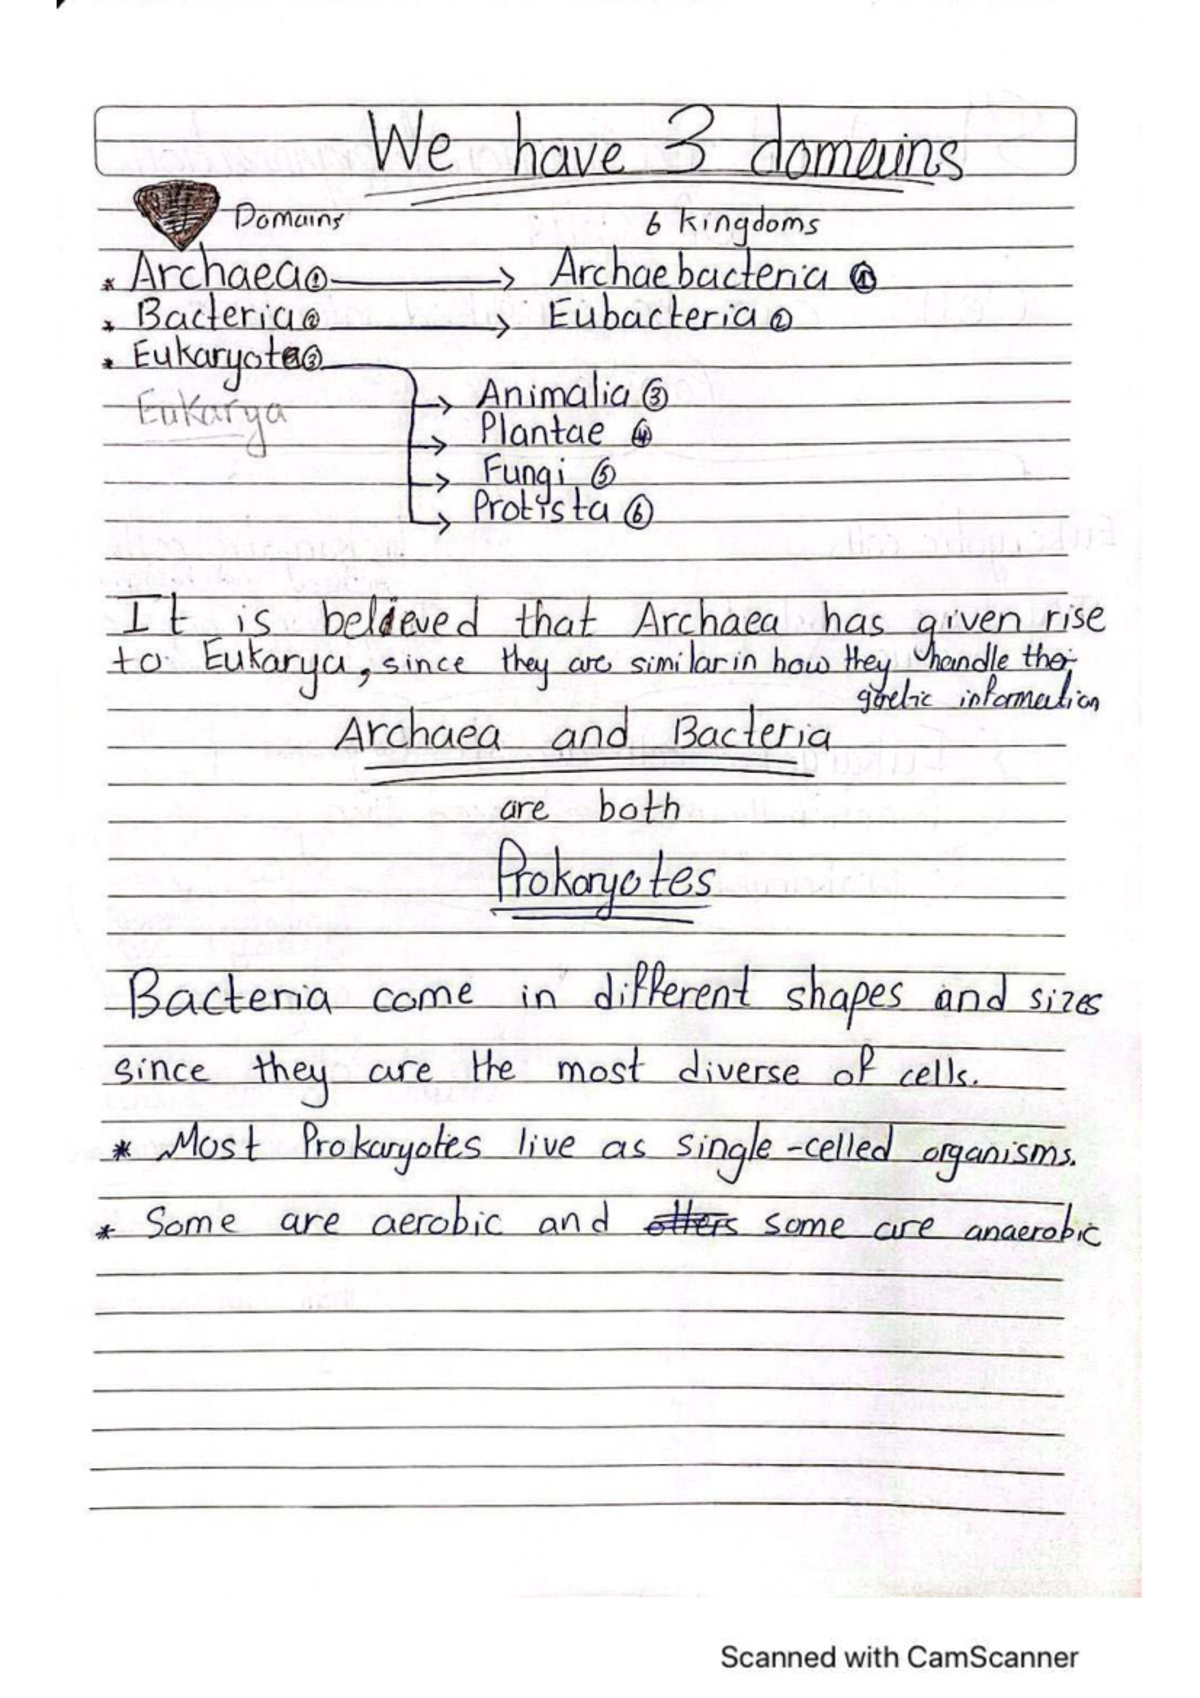 We have 3 domains
Domains 6 kingdoms
* Archaea ① → Archaebacteria ①
* Bacteria ② → Eubacteria ②
* Eukaryote ③
Eukarya
→ Animalia ③
→ Plantae ④
→ Fungi ⑤
→ Protista ⑥
It is believed that Archaea has given rise
to Eukarya, since they are similar in how they handle the
information
Archaea and Bacteria
are both
Prokaryotes
Bacteria come in different shapes and sizes
since they are the most diverse of cells.
* Most Prokaryotes live as single-celled organisms.
* Some are aerobic and others some are anaerobic
Scanned with CamScanner